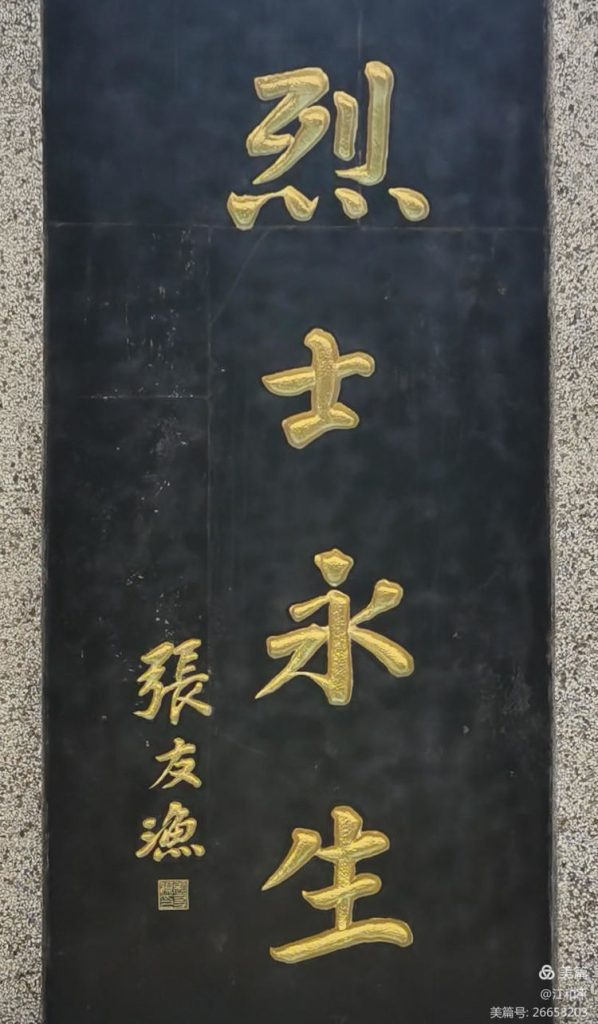 烈士永生
張友漁
美篇
美篇号: 26653203